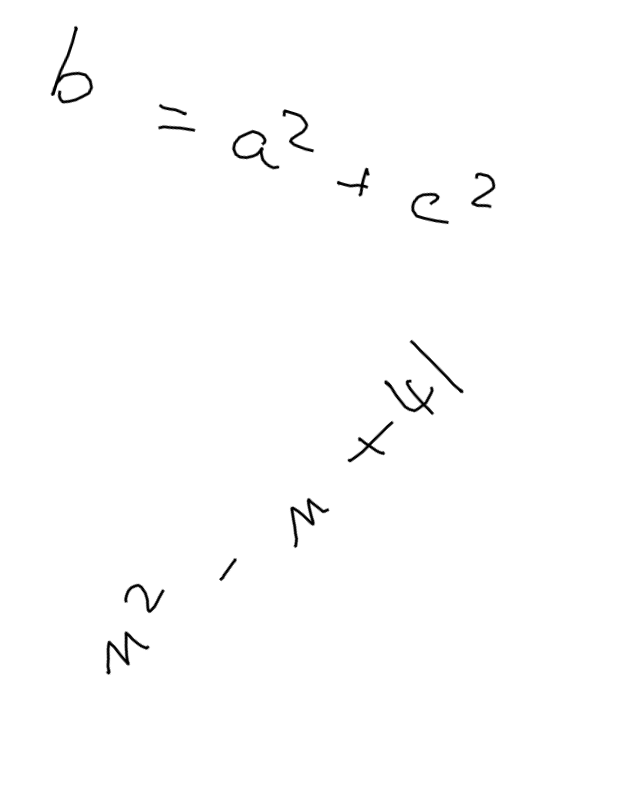 b = a² + c²
n² - n + 41